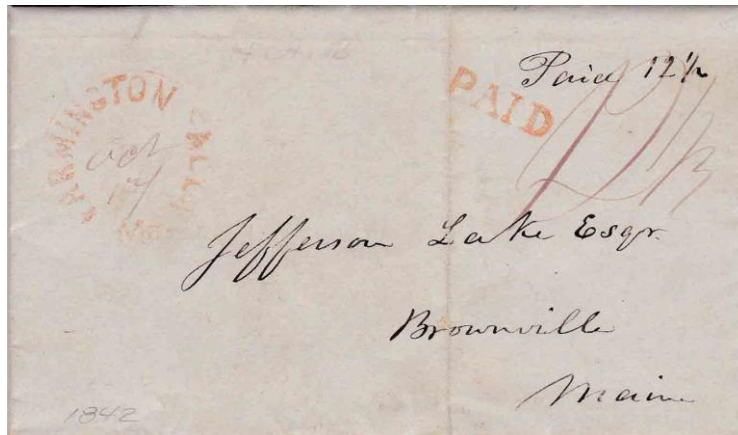 FARMINGTON FALLS
Me.
Oct
17
PAID
Paid 12½
12½
Jefferson Lake Esqr.
Brownville
Maine
1842